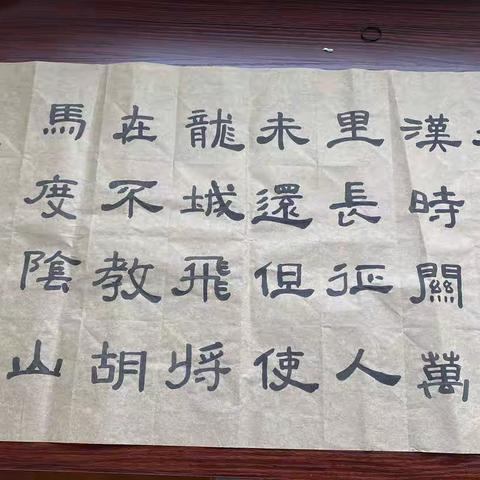 漢時關萬
里長征人
未還但使
龍城飛將
在不教胡
馬度陰山